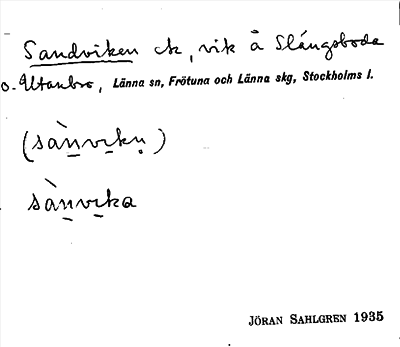 Sandviken ck, vik å Slångsboda
o. Utanbro, Länna sn, Frötuna och Länna skg, Stockholms l.
(sànvikn̥)
sànvika
JÖRAN SAHLGREN 1935